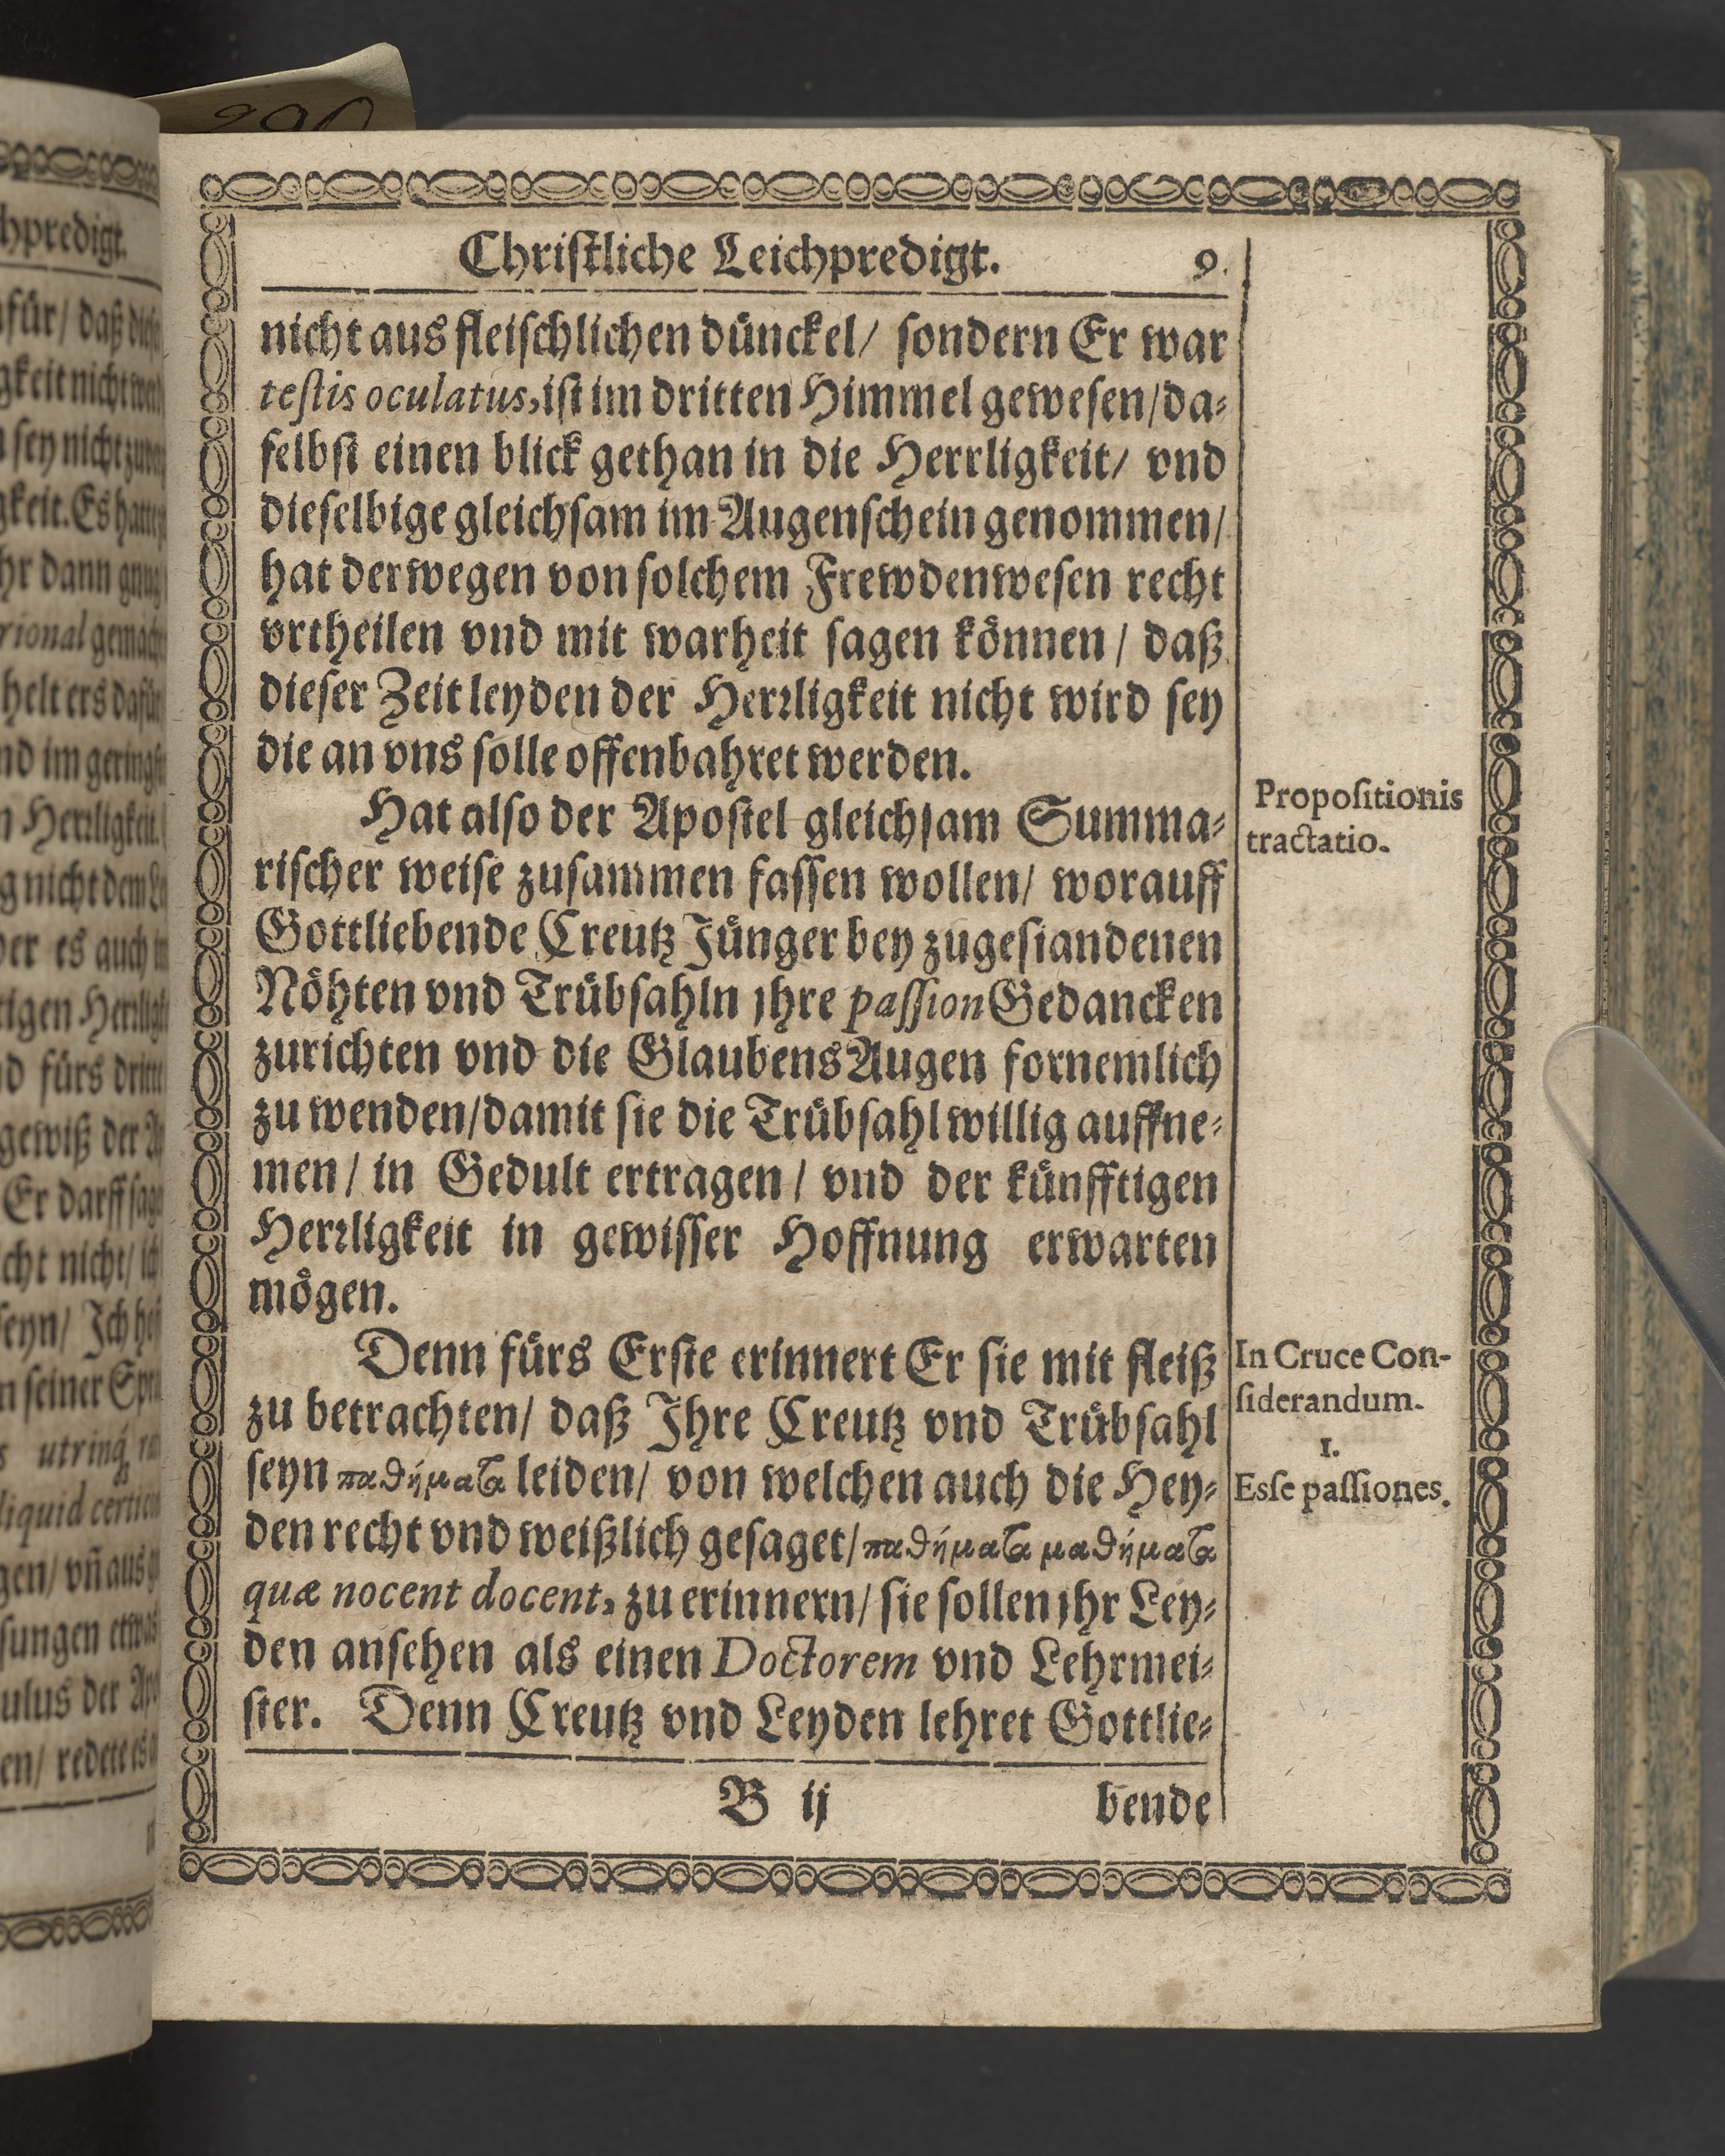 Christliche Leichpredigt. 9.
nicht aus fleischlichen dünckel/ sondern Er war
testis oculatus, ist im dritten Himmel gewesen/da-
selbst einen blick gethan in die Herrligkeit/ vnd
dieselbige gleichsam im Augenschein genommen/
hat derwegen von solchem Frewdenwesen recht
vrtheilen vnd mit warheit sagen können/ daß
dieser Zeit leyden der Herrligkeit nicht wird sey
die an vns solle offenbahret werden.
Hat also der Apostel gleichsam Summa-
rischer weise zusammen fassen wollen/ worauff
Gottliebende Creutz Jünger bey zugestandenen
Nöhten vnd Trübsahln jhre passion Gedancken
zurichten vnd die Glaubens Augen fornemlich
zu wenden/damit sie die Trübsahl willig auffne-
men/ in Gedult ertragen/ vnd der künfftigen
Herrligkeit in gewisser Hoffnung erwarten
mögen.
Denn fürs Erste erinnert Er sie mit fleiß
zu betrachten/ daß Jhre Creutz vnd Trübsahl
seyn παθήματα leiden/ von welchen auch die Hey-
den recht vnd weißlich gesaget/ παθήματα μαθήματα
quæ nocent docent, zu erinnern/ sie sollen jhr Ley-
den ansehen als einen Doctorem vnd Lehrmei-
ster. Denn Creutz vnd Leyden lehret Gottlie-
B ij bende
Propositionis
tractatio.
In Cruce Con-
siderandum.
1.
Esse passiones.
hpredigt.
für/ daß
gkeit nicht
sey nicht
gkeit. Es
hr dann
rional
helt ers
nd im
Herrligkeit.
g nicht
er es auch
tigen
d fürs
gewiß der
Er darff
cht nicht/
seyn/ Jch
n seiner
utrinq́;
liquid
gen/ vñ aus
sungen
ulus der
en/ redete